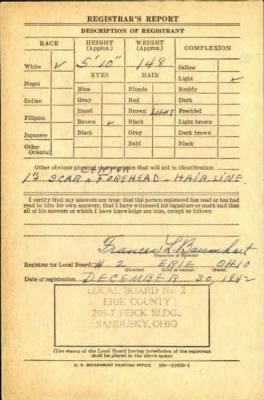 REGISTRAR'S REPORT
DESCRIPTION OF REGISTRANT
RACE HEIGHT (Approx.) WEIGHT (Approx.) COMPLEXION
White ✓ 5' 10" 148 Sallow
EYES HAIR Light ✓
Negro Blue Blonde Ruddy
Indian Gray Red Dark
Filipino Hazel Brown LIGHT Freckled
Brown ✓ Black Light brown
Japanese Black Gray Dark brown
Other Bald Black
Oriental
Other obvious physical characteristics that will aid in identification
1" SCAR FOREHEAD - HAIR LINE
I certify that my answers are true; that the person registered has read or has had
read to him his own answers; that I have witnessed his signature or mark and that
all of his answers of which I have knowledge are true, except as follows:
Frances L. Baumhart
(Signature of Registrar)
Registrar for Local Board # 2 ERIE OHIO
(Number) (City or county) (State)
Date of registration DECEMBER 30, 1942
LOCAL BOARD No. 2
ERIE COUNTY
205-7 FEICK BLDG.,
SANDUSKY, OHIO
(The stamp of the Local Board having jurisdiction of the registrant
shall be placed in the above space)
U. S. GOVERNMENT PRINTING OFFICE